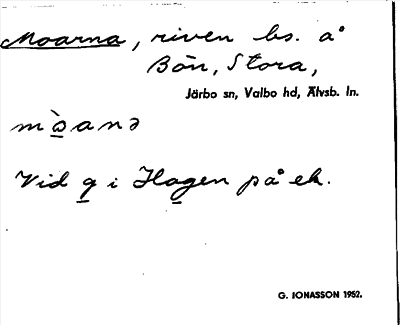 Moarna, riven bs. å
Bön, Stora,
Järbo sn, Valbo hd, Älvsb. ln.
mòanə
Vid g i Hagen på ek.
G. JONASSON 1952.